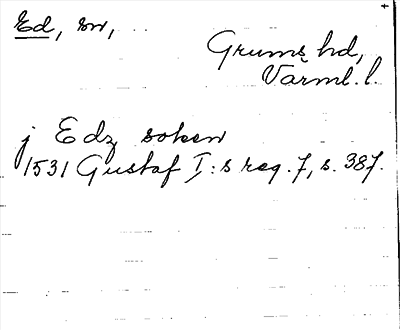 Ed, sn,
Grums hd,
Värml. l.
j Edz soken
1531 Gustaf I:s reg. 7, s. 387.